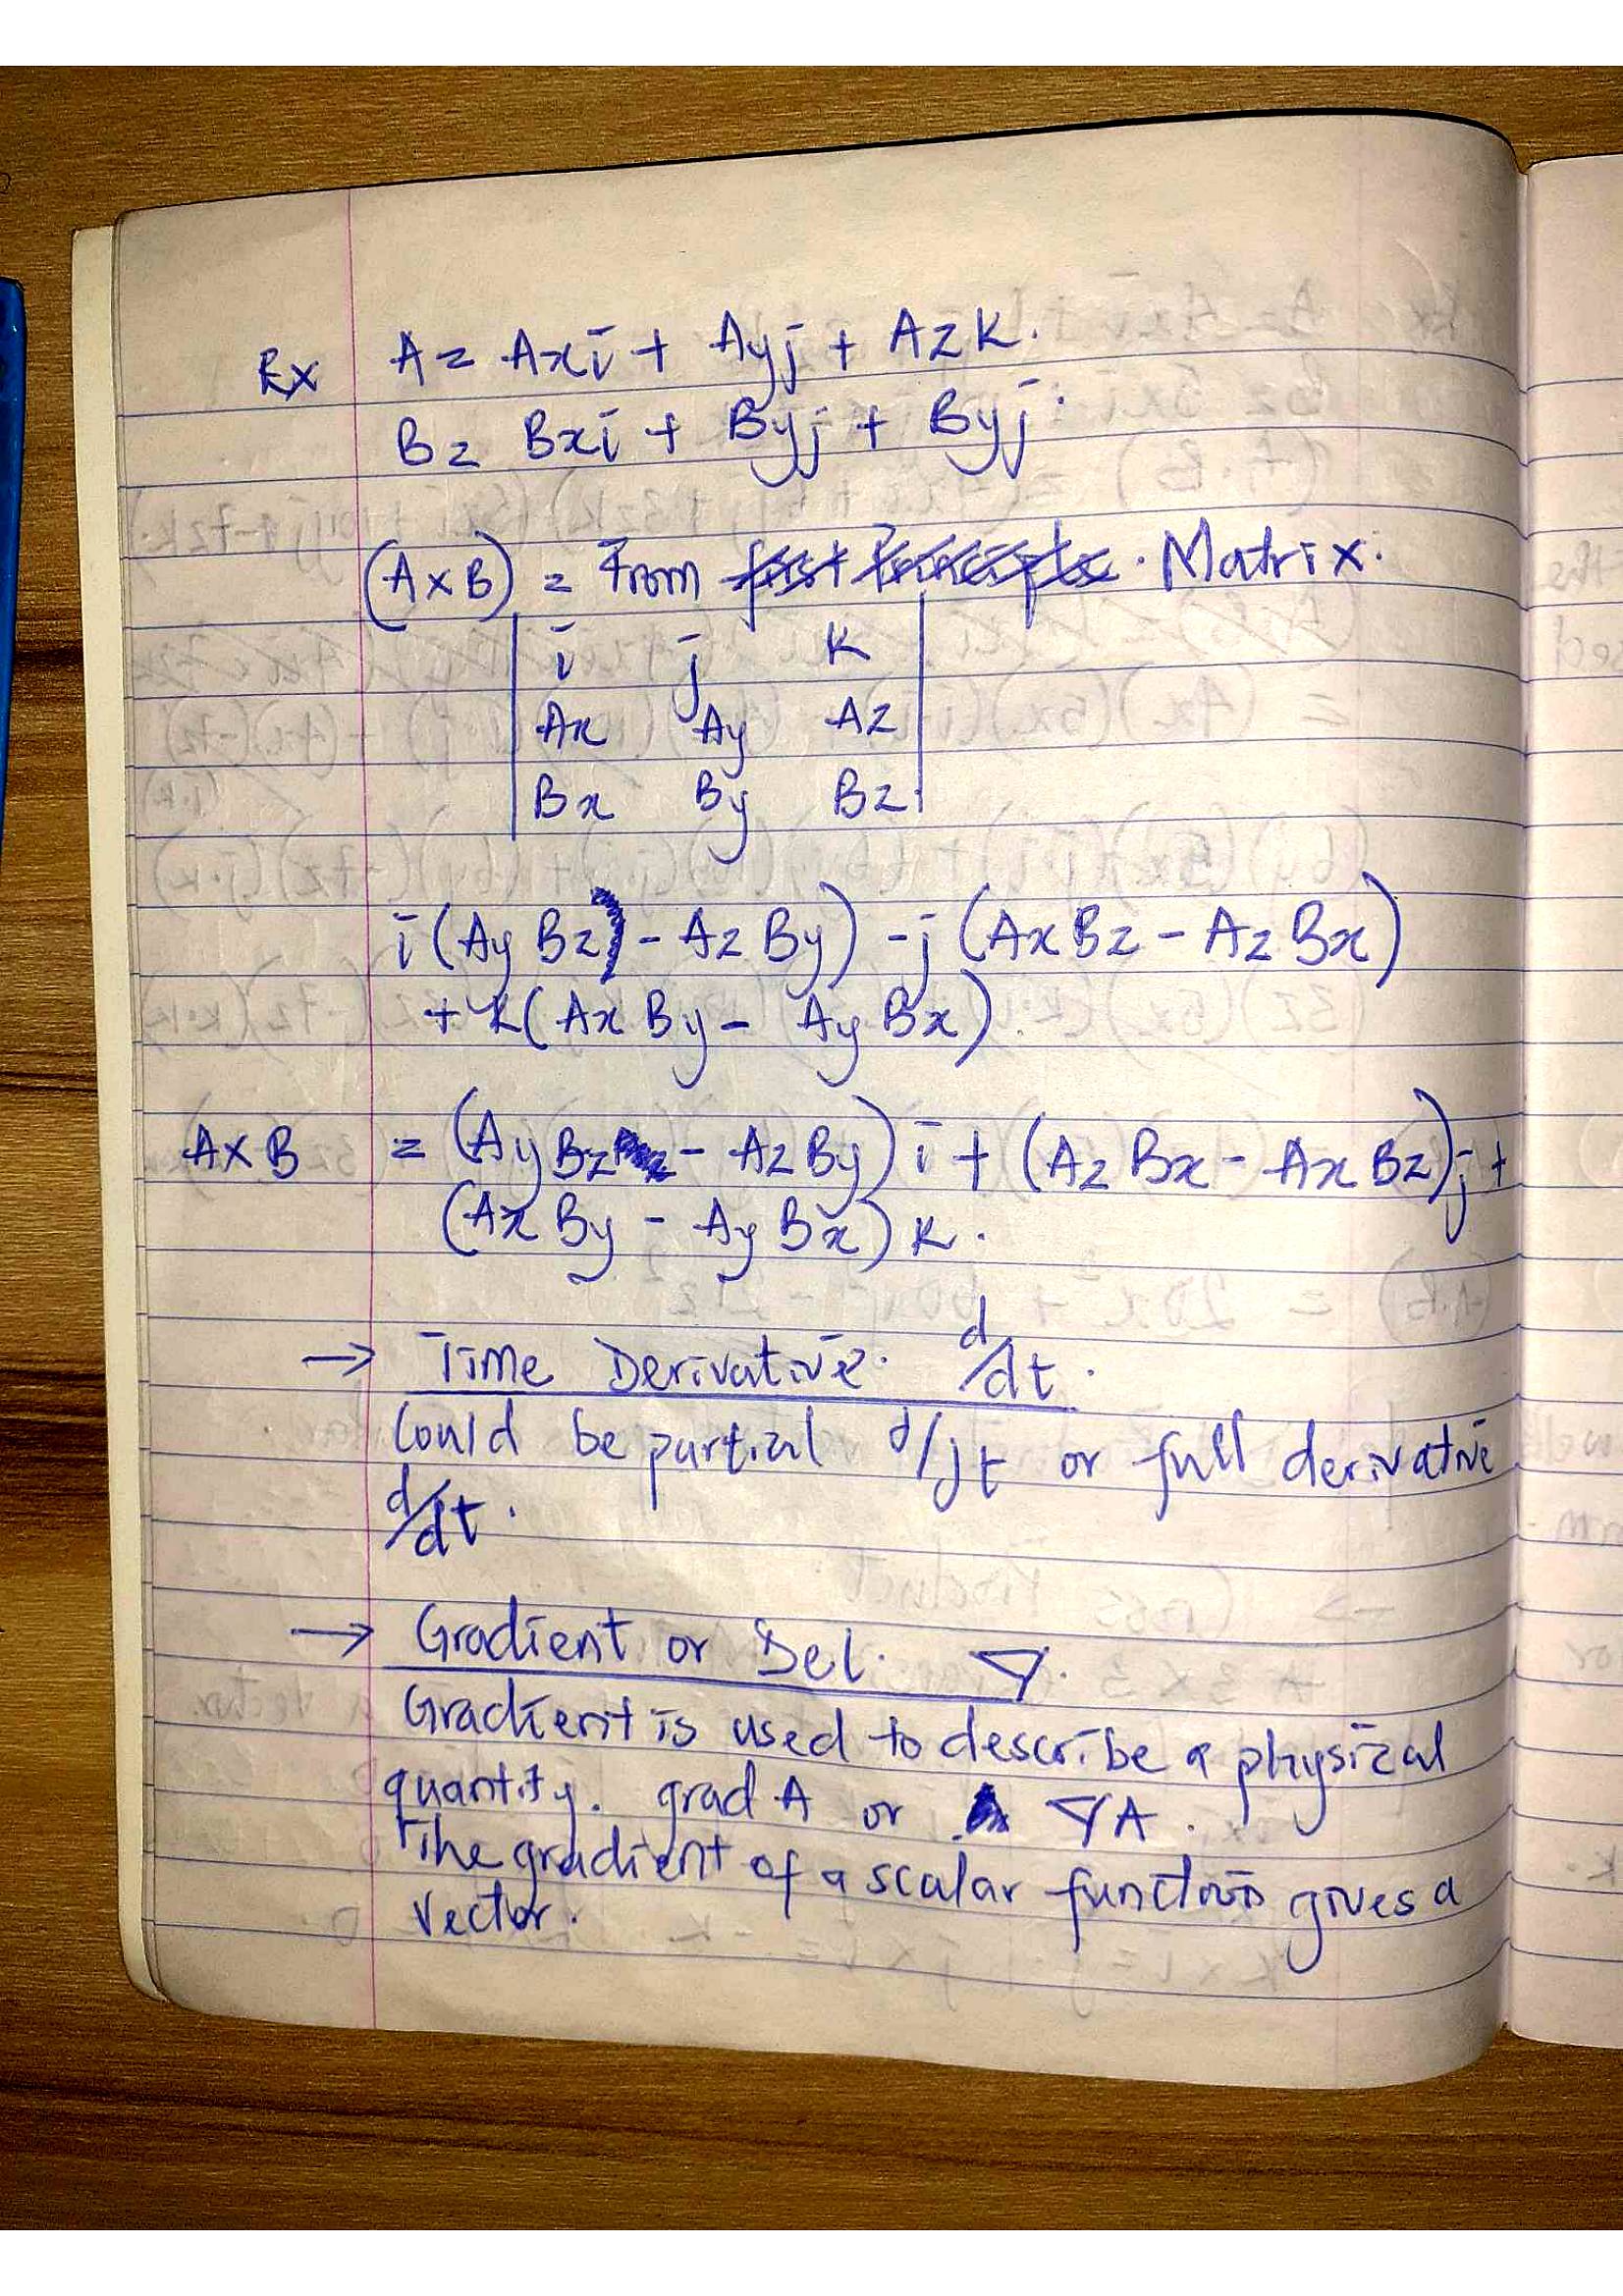 Ex A = Axi + Ayj + Azk.
B = Bxi + Byj + Byj.
(A×B) = From first Principles. Matrix.
i j k
Ax Ay Az
Bx By Bz
i(Ay Bz) - Az By) - j(Ax Bz - Az Bx)
+ k(Ax By - Ay Bx).
A×B = (Ay Bz - Az By)i + (Az Bx - Ax Bz)j +
(Ax By - Ay Bx)k.
→ Time Derivative. d/dt.
Could be partial d/∫t or full derivative
d/dt.
→ Gradient or Del. ∇.
Gradient is used to describe a physical
quantity. grad A or ∇A.
The gradient of a scalar function gives a
vector.